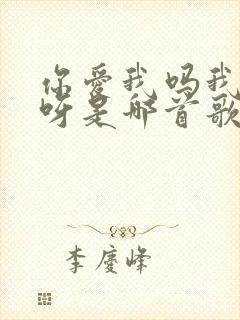 你爱我吗我
呀是那首歌
李庆峰